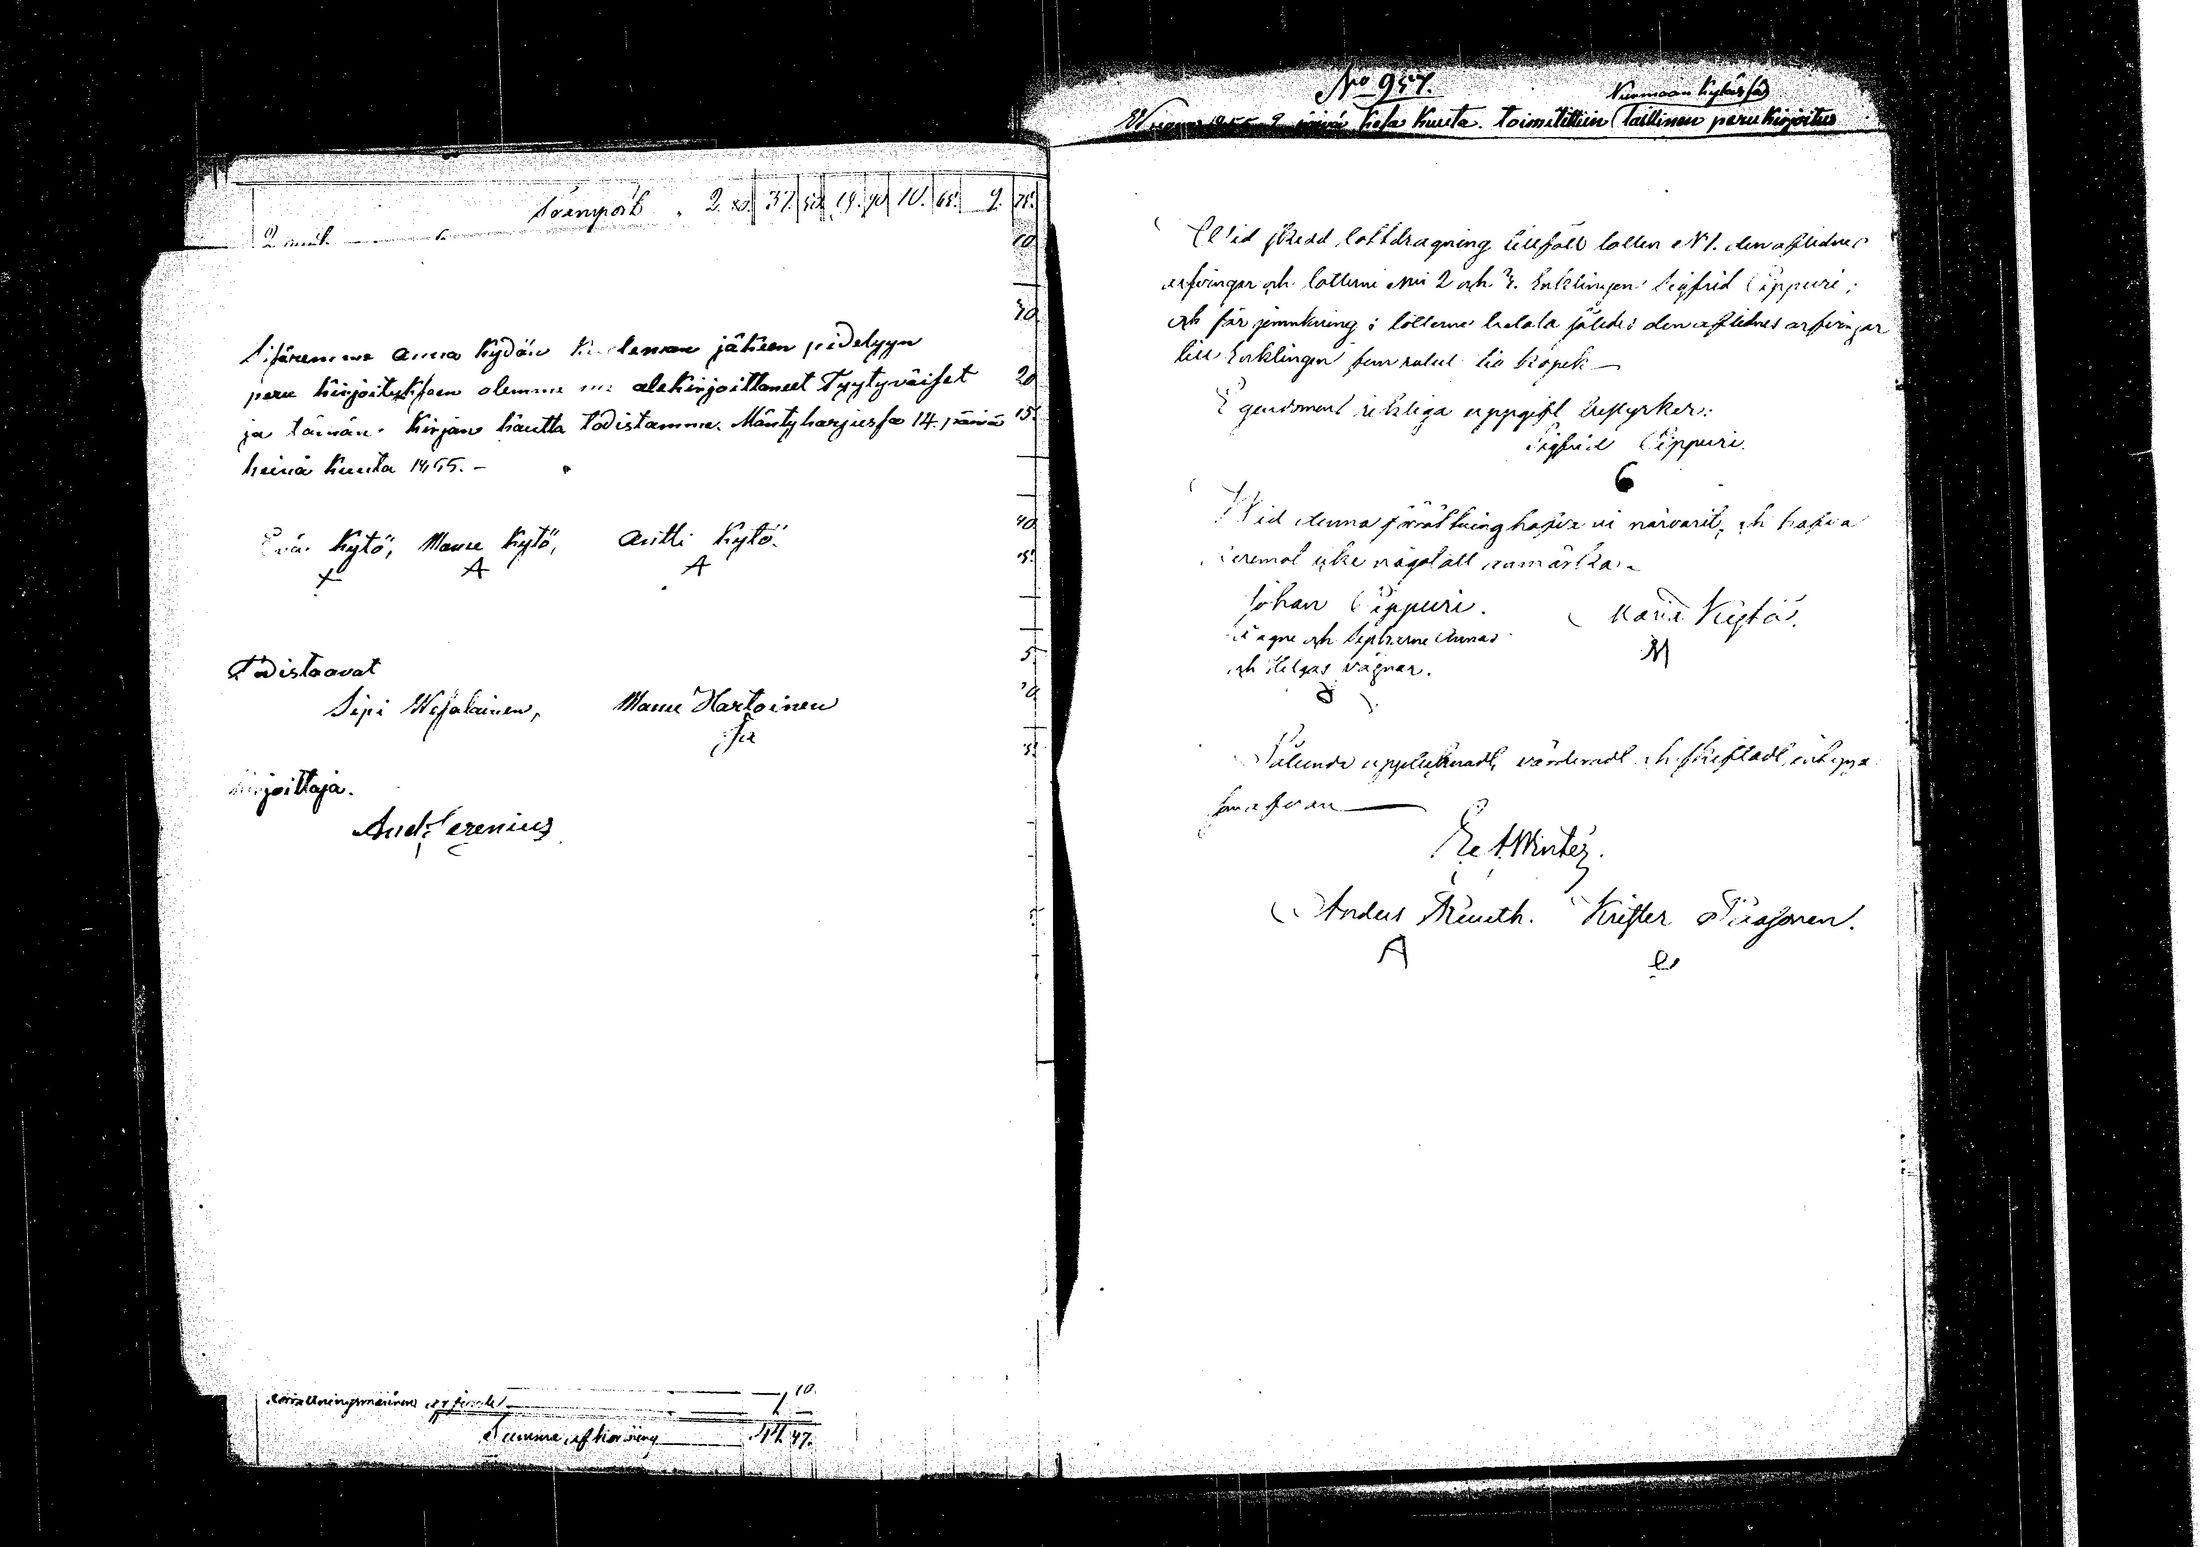 Transport 2. 80. 37. 50. 19. 90 10. 65. 9. 75.
Sisäremme Anna Kydön kuoleman jälkeen pidetyyn
peru kirjoitukseen olemme me alekirjoittaneet Tyytyväiset
ja tämän kirjan kautta todistamme. Mäntyharjussa 14. päivä
heinä kuuta 1855. –
Eva Kytö, Manu Kytö, Antti Kytö.
Todistaavat
Sipi Wesalainen, Manu Hartoinen
kirjoittaja.
And: Serenius
10.
Summa afkortning 44. 47.
No 957.
Nurmaan kylässä
Wuonna 1855 9 päivä kesa kuuta. toimitettiin laillinen perukirjoitus
Wid skedd lottdragning tillföll lotten N 1. den aflidnes
arfvingar och lotterne N:ris 2 och 3. Enklingen Sigfrid Pippuri;
och för jemnkning i lotterne betala således den aflidnes arfvingar
till Enklingen fem rubel tio kopek —
Egendomens riktiga uppgift bestyrker:
Sigfrid Pippuri.
Wid denna förrättning hafva vi närvarit, och hafva
deremot icke något att anmärka.
Johan Pippuri. Maria Kytö.
egne och Systrarne Annas
och Helgas vägnar.
Sålunda upptecknadt, värderadt och skiftadt, intyga
Er. A. Winter.
Anders Krouth. Krister Tuasonen.